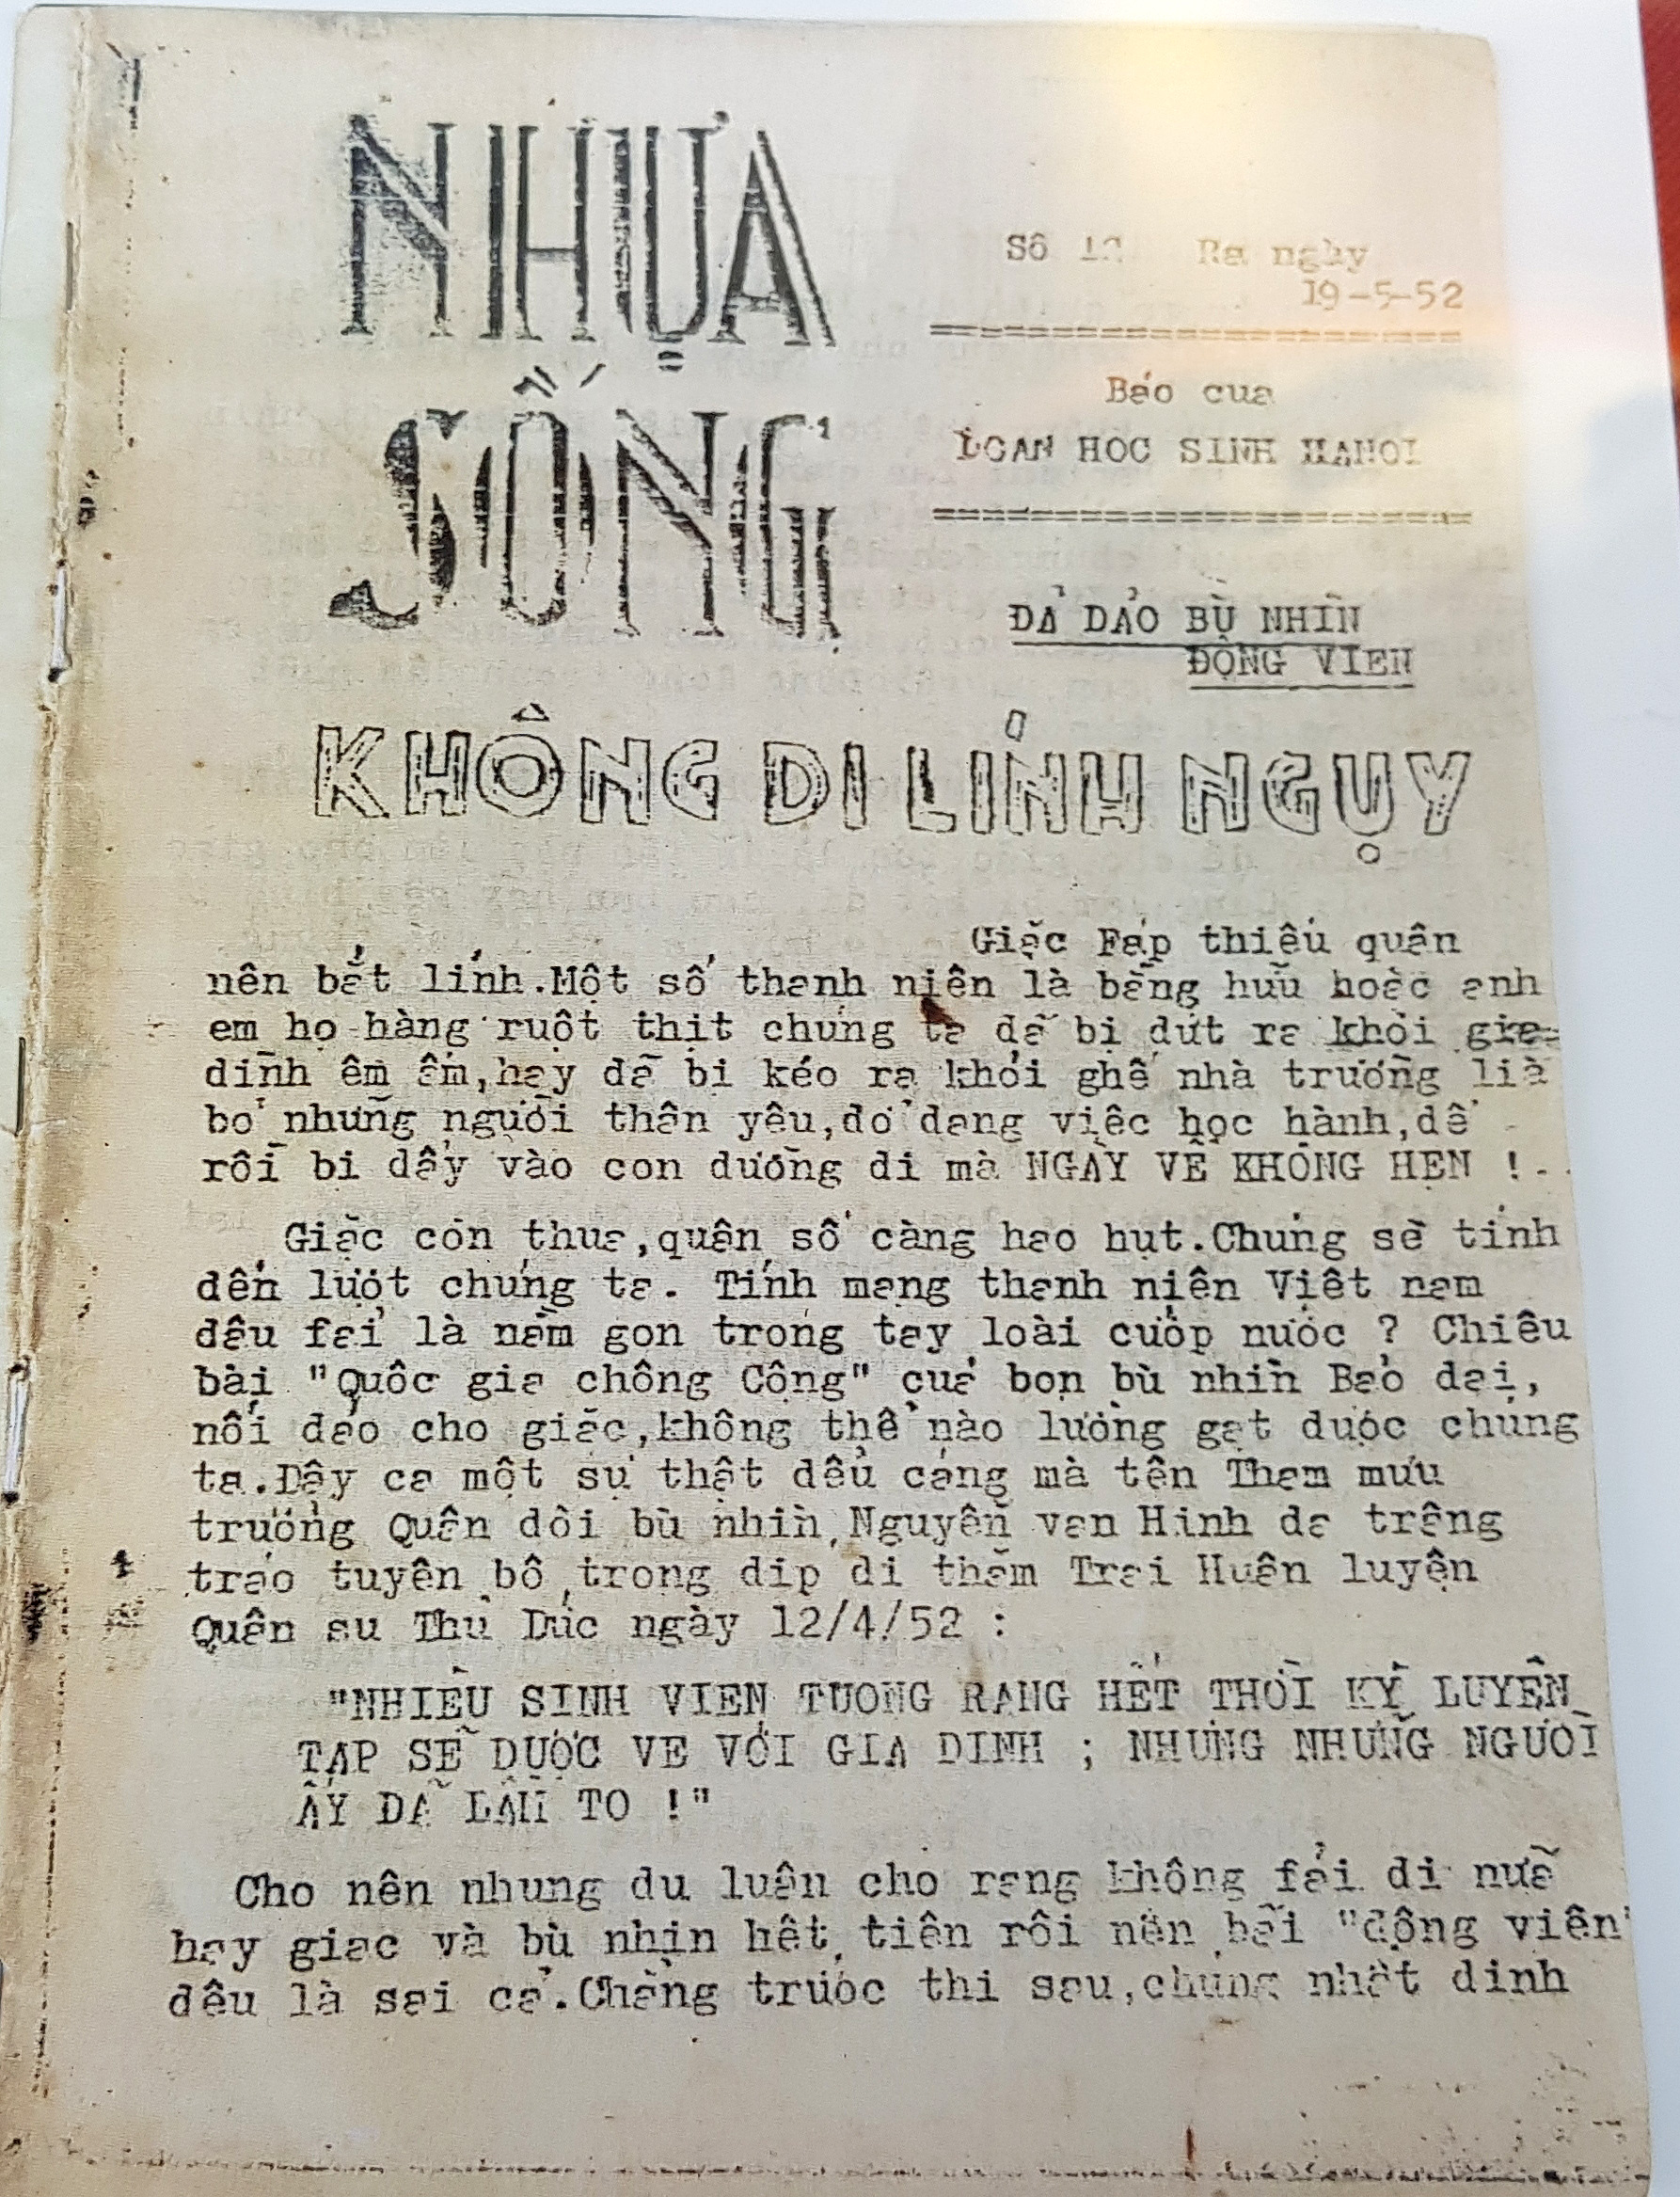 NHỰA
SỐNG
Số Ra ngày
19-5-52
Báo cua
ĐOAN HOC SINH HANOI
ĐẢ DẢO BÙ NHÌN
ĐỘNG VIEN
KHÔNG DI LÍNH NGỤY
Giặc Fap thiếu quân
nên bắt lính.Một số thanh niên là bằng hữu hoặc anh
em họ hàng ruột thịt chúng ta dã bị dứt ra khỏi gia
dình êm ấm,hay dã bi kéo ra khỏi ghế nhà trường lià
bỏ những người thân yêu,dở dang việc học hành,dể
rồi bi dẩy vào con dường di mà NGÀY VỀ KHÔNG HẸN !
Giặc còn thua,quân số càng hao hụt.Chúng sẽ tính
dến lượt chúng ta. Tính mạng thanh niên Việt nam
dâu fải là nằm gon trong tay loài cướp nước ? Chiêu
bài "Quôc gia chông Cộng" cuả bọn bù nhìn Bảo dại,
nối dáo cho giặc,không thể nào lường gạt dược chúng
ta.Dây ca một sự thật dểu cáng mà tên Tham mưu
trưởng Quân dôi bù nhìn,Nguyễn van Hinh da trâng
tráo tuyên bô trong dip di thăm Trai Huân luyện
Quân su Thủ Dức ngày 12/4/52 :
"NHIỀU SINH VIEN TUONG RANG HẾT THỜI KỲ LUYỆN
TAP SẼ DƯỢC VE VỚI GIA DINH ; NHƯNG NHỮNG NGƯỜI
ẤY DÃ LẦM TO !"
Cho nên nhung du luân cho rang không fải di nưã
hay giac và bù nhìn hêt tiên rôi nên bãi "dộng viên"
dêu là sai cả.Chẳng trước thi sau,chúng nhất dinh